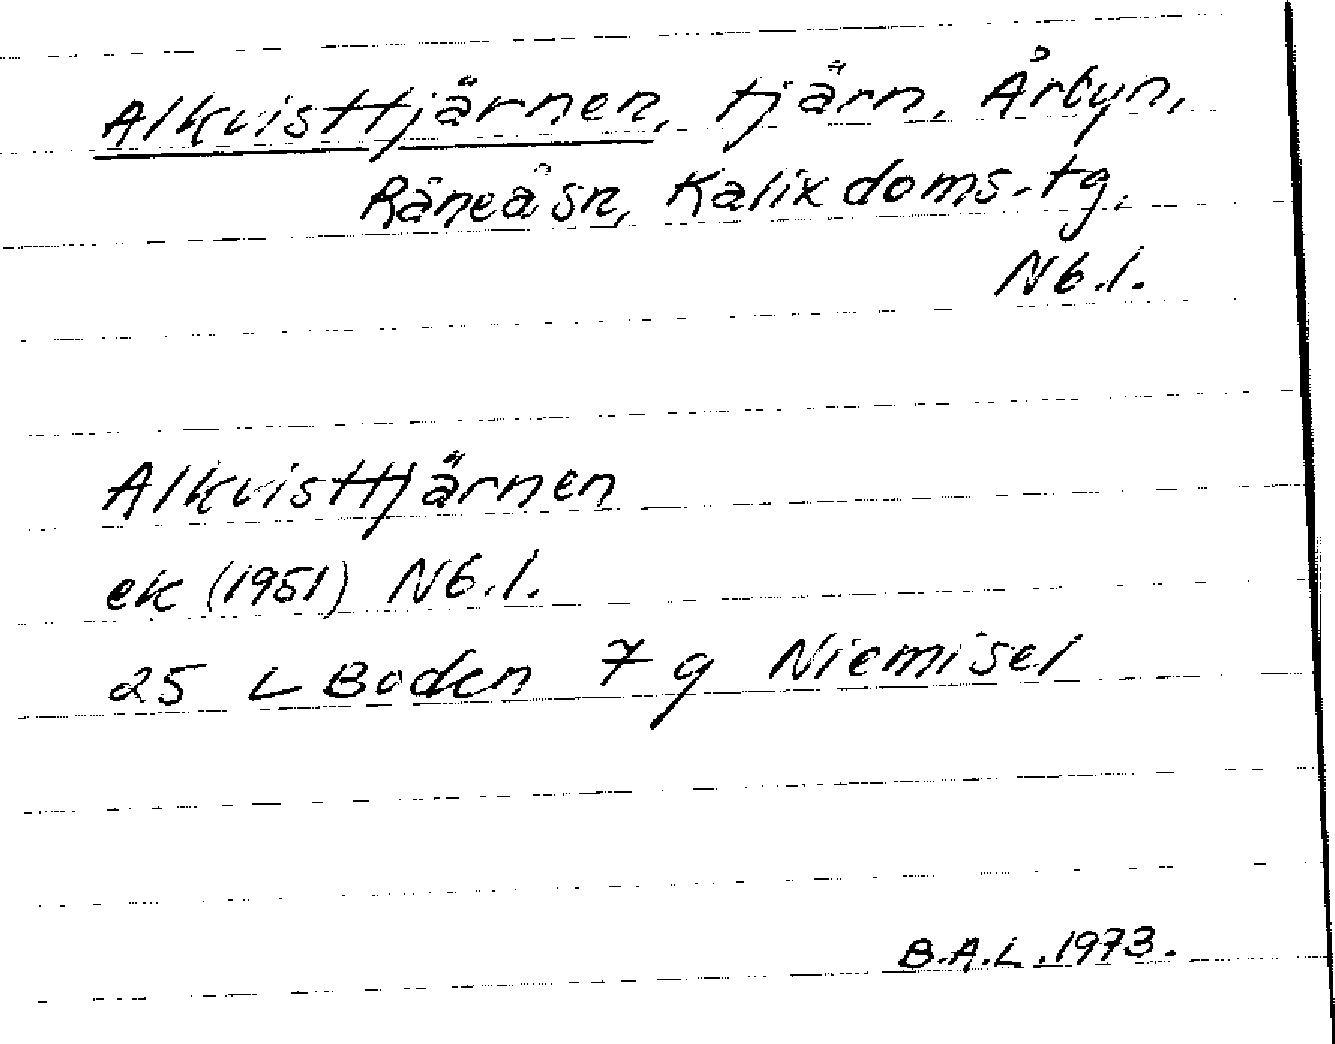 Alkvisttjärnen, tjärn, Årbyn,
Råneå sn, Kalix doms.-tg,
Nb.l.
Alkvisttjärnen
ek (1951) Nb.l.
25 L Boden 7 g Niemisel
B.A.L. 1973.